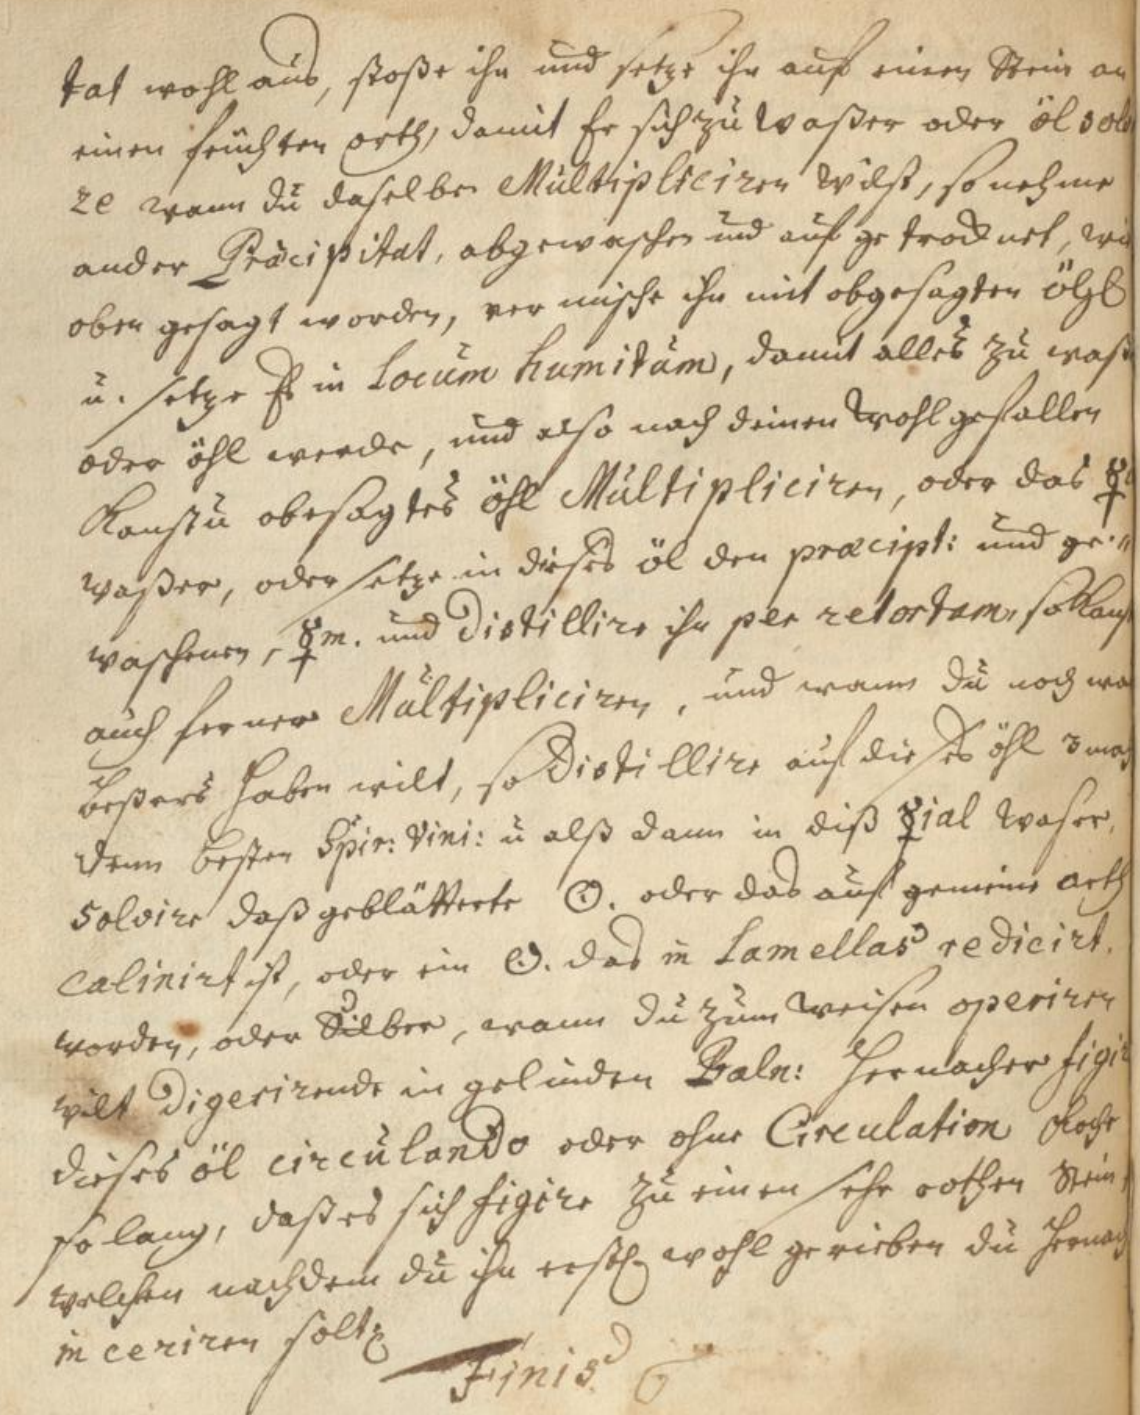 tat wohl aus, stoße ihn und setze ihn auf einen Stein an
einen feüchten orth, damit Er sich zu Waßer oder öl solv
re wann dü daselbe Mültipliciren wilst, so nehme
ander Præcipitat, abgewaschen und auf getrocknet, wie
oben gesagt worden, vermische ihn mit obgesagten ölhl
ü. setze Es in Locüm humitüm, damit alles zu waß
oder öhl werde, und also nach deinen Wohlgefallen
Kanstu obesagtes öhl Mültipliciren, oder das ☿
waßer, oder setze in dieses öl den præcipt: und ge=
waschenen, ☿m. und Distillire ihn per retortam, so Kans
auch ferner Mültipliciren, und wann dü noch was
beßers haben wilt, so Distillire auf dieses öhl 3 mal
denn besten Spir: Vini: ü alß dann in diß ☿ial Waser,
solvire daß geblätterte ☉. oder das auf gemeine arth
calinirt ist, oder ein ☉. das in Lamellas redicirt.
worden, oder Silber, wann dü züm Weisen operiren
wilt Digerirende in gelinden Baln: Hernacher figir
dieses öl circülando oder ohne Circulation Koche
so lang, daß es sich figire zu einen sehr rothen Stein,
welchen nachdem dü ihn erstl. wohl gerieben dü hernach
in ceriren solt
Finis.